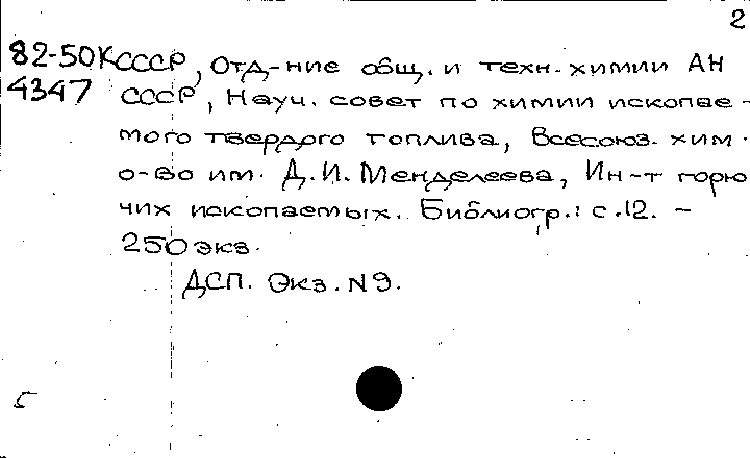 2
82-50К СССР, Отд-ние общ. и техн. химии АН
4347 СССР, Науч. совет по химии ископае-
мого твердого топлива, Всесоюз. хим.
о-во им. Д.И. Менделеева, Ин-т горю
чих ископаемых. Библиогр.: с.12. -
250 экз.
ДСП. Экз. N9.
5